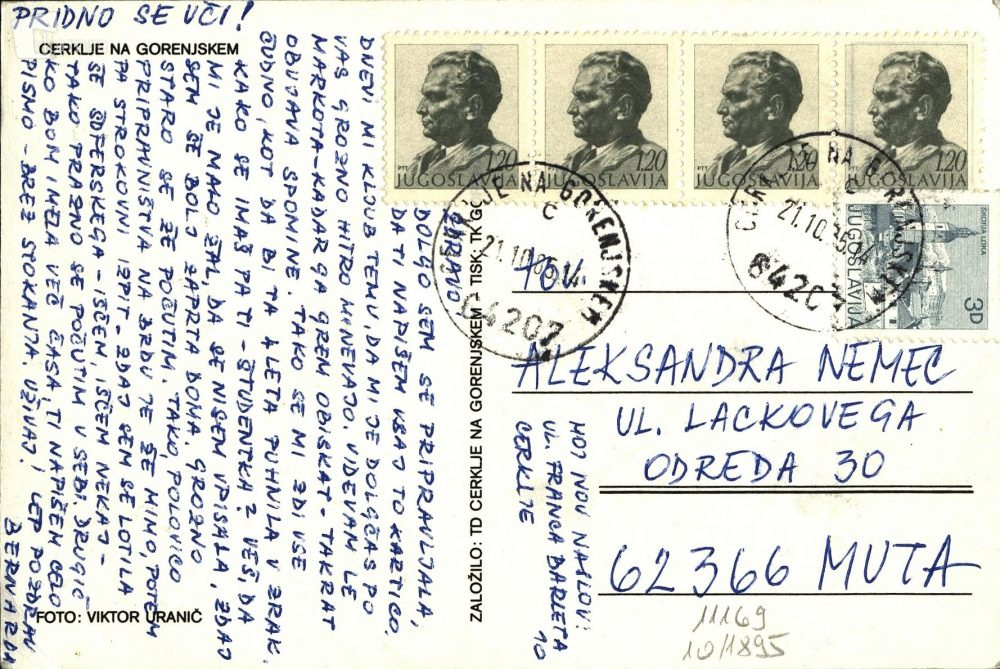 PRIDNO SE UČI!
CERKLJE NA GORENJSKEM
ZDRAVO
DOLGO SEM SE PRIPRAVLJALA,
DA TI NAPIŠEM VSAJ TO KARTICO.
DNEVI MI KLJUB TEMU, DA MI JE DOLGČAS PO
VAS GROZNO HITRO MINEVAJO. VIDEVAM LE
MARKOTA - KADAR GA GREM OBISKAT - TAKRAT
OBUJAVA SPOMINE. TAKO SE MI ZDI VSE
ČUDNO, KOT DA BI TA 4 LETA PUHNILA V ZRAK.
KAKO SE IMAŠ PA TI - ŠTUDENTKA? VEŠ, DA
MI JE MALO ŽAL, DA SE NISEM VPISALA. ZDAJ
SEM ŠE BOLJ ZAPRTA DOMA. GROZNO
STARO SE ŽE POČUTIM. TAKO, POLOVICO
PRIPRAVNIŠTVA NA BRDU JE ŠE MIMO, POTEM
PA STROKOVNI IZPIT. ZDAJ SEM SE LOTILA
ŠE ŠOFERSKEGA - IŠČEM, IŠČEM NEKAJ -
TAKO PRAZNO SE POČUTIM V SEBI. DRUGIČ
KO BOM IMELA VEČ ČASA, TI NAPIŠEM CELO
PISMO - BREZ STOKANJA. UŽIVAJ! LEP POZDRAV
BERNARDA
FOTO: VIKTOR URANIČ
ZALOŽILO: TD CERKLJE NA GORENJSKEM - TISK: TK GO
PTT 1,20
JUGOSLAVIJA
PTT 1,20
JUGOSLAVIJA
PTT 1,20
JUGOSLAVIJA
PTT 1,20
JUGOSLAVIJA
ŠKOFJA LOKA
JUGOSLAVIJA
3D
CERKLJE NA GORENJSKEM
C
21.10.85.14
64207
CERKLJE NA GORENJSKEM
C
21.10.85.14
64207
TOV.
ALEKSANDRA NEMEC
UL. LACKOVEGA
ODREDA 30
62366 MUTA
MOJ NOV NASLOV:
UL. FRANCA BARLETA
10
CERKLJE
11169
10/1895